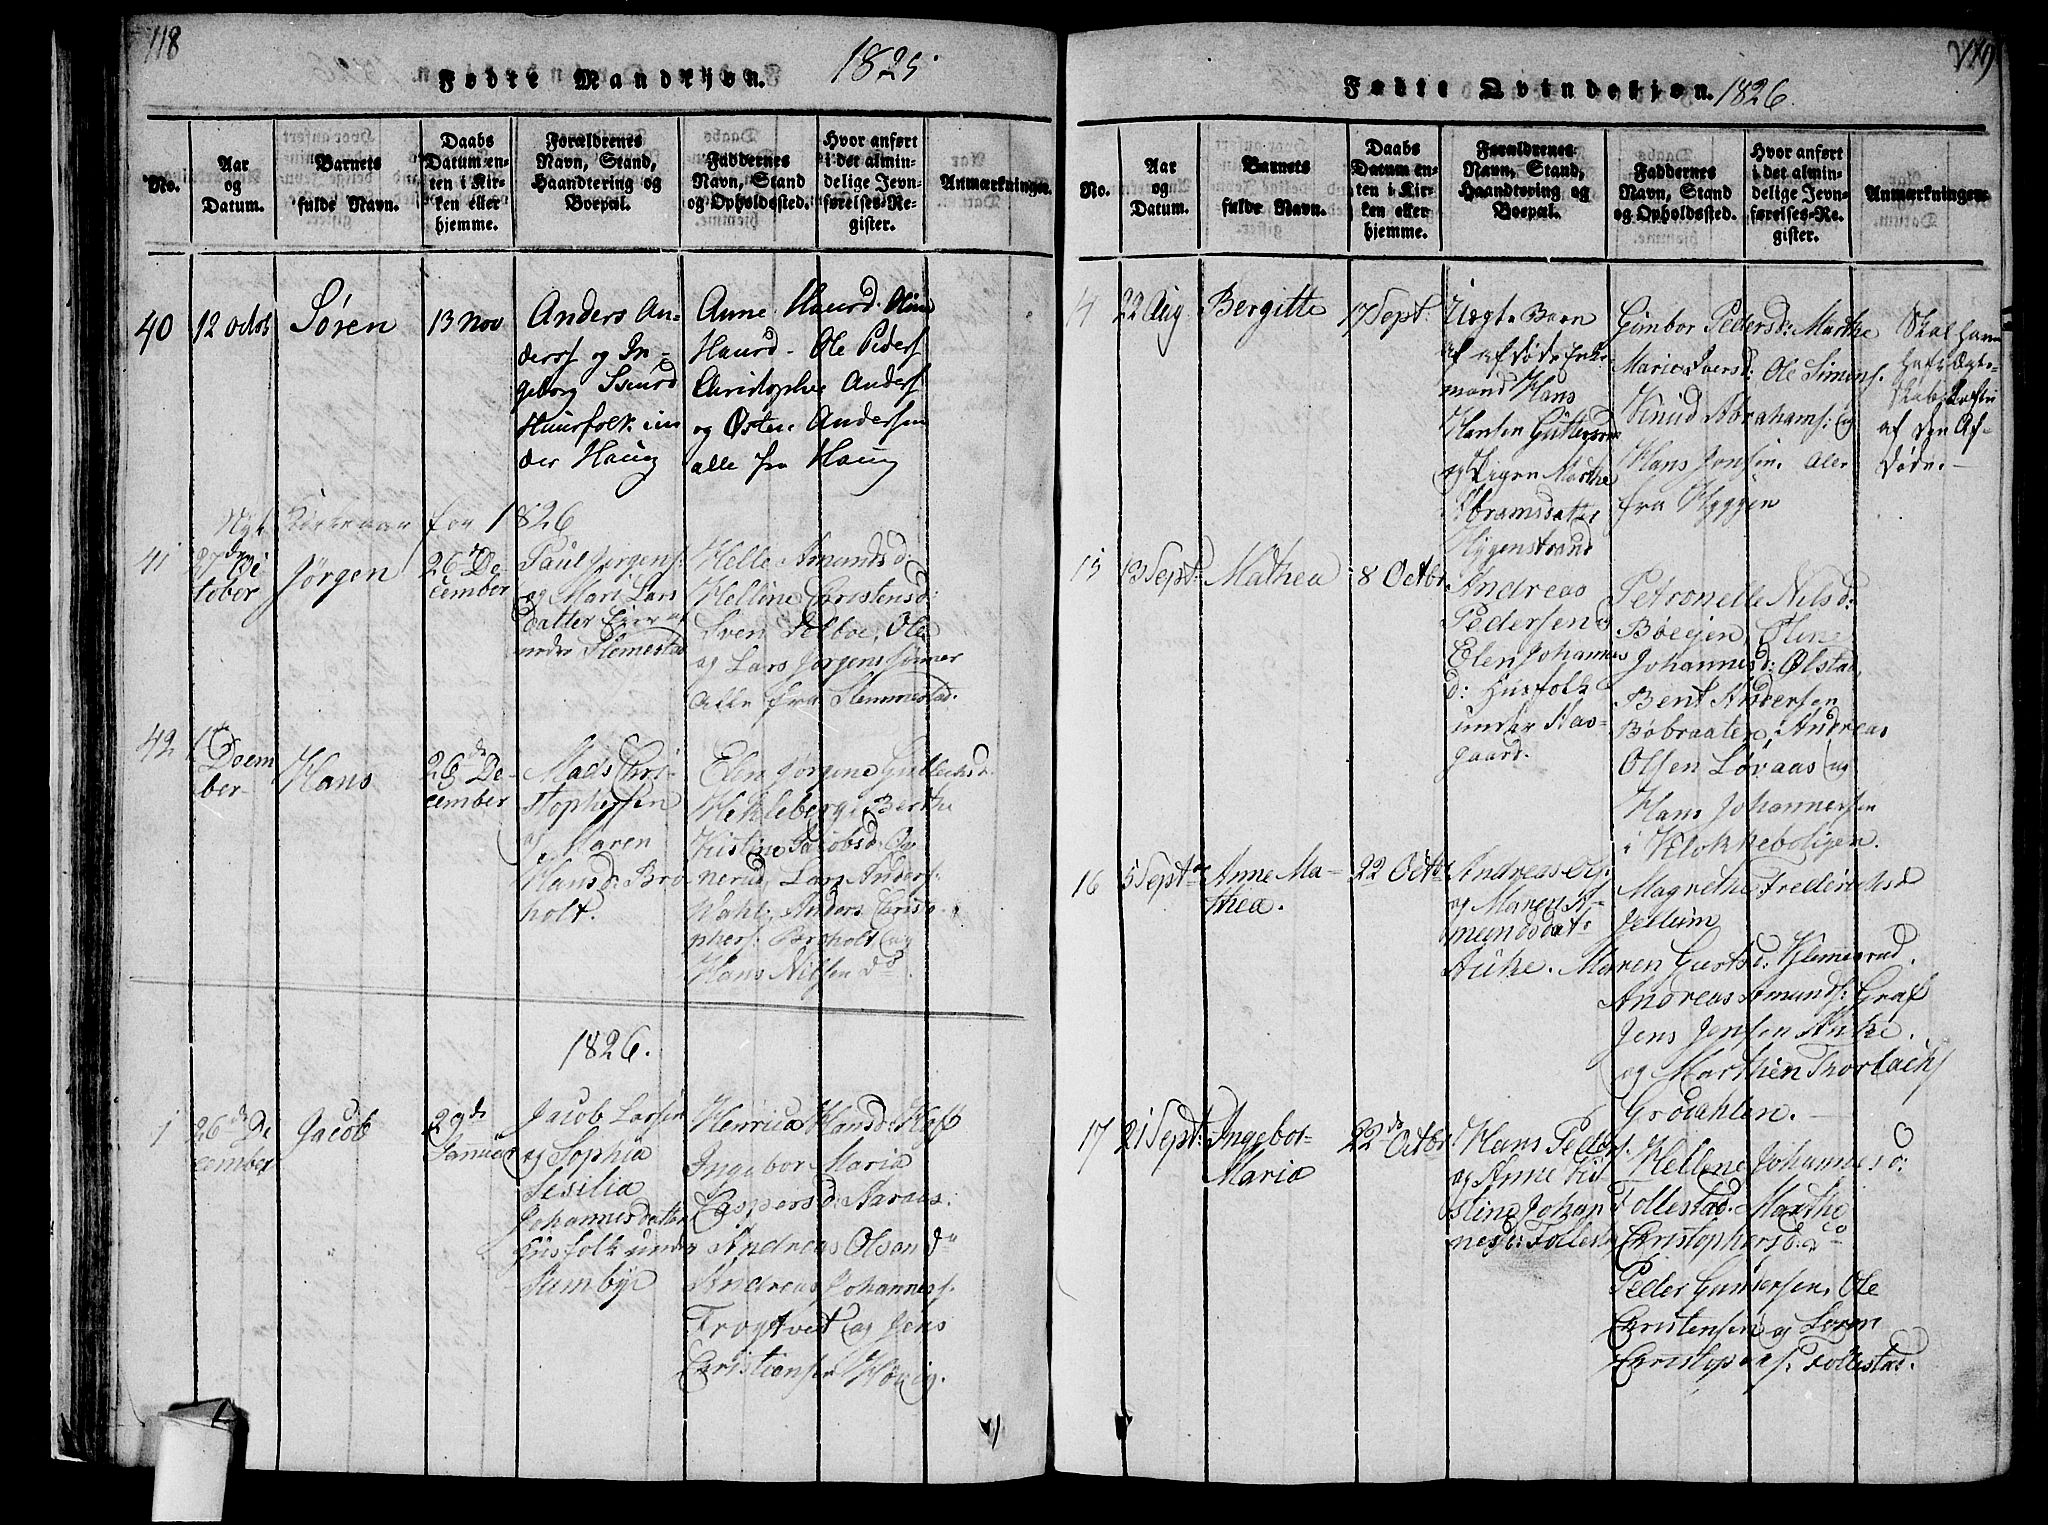 118
1825
Fødte Mandkjøn.
No.
Aar og Datum.
Barnets fulde Navn.
Daabs Datum enten i Kirken eller hjemme.
Forældrenes Navn, Stand, Haandtering og Boepæl.
Faddernes Navn, Stand og Opholdssted.
Hvor anført i det almindelige Jevnførelses-Register.
Anmærkninger.
40
12 Octob
Søren
13 Nov
Anders An-
derss og In-
geborg
Huusfolk un
der Haug
Anne
Ole Peders
Christopher Anders
og Østen Andersen
alle fra Haug
for 1826
41
27de Oc
tober
Jørgen
26de De-
cember
Paul Jørgens:
og Mari Lars
datter Eier
nedre Slemestad
Helle Amundsd:
Helline Christensd:
Sven Selboe, Ole
og Lars Jørgens sønner
Alle fra Slemmestad.
42
Decem
ber
Hans
26de De-
cember
Mads Chri-
stophersen
og Maren
Hansd: Bro
holt.
Elen Jørgine Gulbichsd:
Hekleberg, Berthe
Kistine Jacobsd:
nerud, Lars Anders:
Wahl, Anders Christo-
phers: Broholt og
Hans Nilsen do.
1826.
1
26de De
cember
Jacob
29de
Januar
Jacob Larsen
og Sophia
Sesilia
Johannesdatter
Huusfolk under
Sumbye
Henrica Hansd:
Ingebor Maria
Caspersd: Aaraas.
Andreas Olsen do
Andreas Johanness.
Frogtvet og Jens
Christiansen Hørvig.
119
Fødte Qvindekjøn. 1826
No.
Aar og Datum.
Barnets fulde Navn.
Daabs Datum enten i Kirken eller hjemme.
Forældrenes Navn, Stand, Haandtering og Boepæl.
Faddernes Navn, Stand og Opholdssted.
Hvor anført i det almindelige Jevnførelses-Re. gister.
Anmærkninger.
22 Aug
Bergitte
17 Sept.
Uægte Barn
af afdøde Enke-
mand Hans
Hansen
og Pigen Marthe
Abramsdatter
Hygenstrand
Gunbor Pedersd: Marthe
Maria Iversd: Ole Simens.
Knud Abrahams: og
Hans Jensen. Alle
fra Hyggen
Skal have
haft Ægte-
skabsløfte
af den Af-
døde.
15
13 Sept:
Mathea
8 Octbr
Andreas
Pedersen og
Elen Johannes
d: Husfolk
under Aas-
gaard.
Petronelle Nilsd:
Bøeijen, Elene
Johannesd: Ølstad,
Bent Andersen
Bøbraaten, Andreas
Olsen Løraas og
Hans Johannersen
i Klokkeboligen.
16
5 Septbr
Anne Ma-
thea.
22 Octb
Andreas Ols.
og Maren A-
mundsdat:
Auke.
Magrethe Frederichsd
Jellum
Maren Gustsd: Klemmerud.
Andreas Amunds: Graf
Jens Jensen Auke.
og Marthin Thorbach
Grødahlen.
17
21 Sept:
Ingebor-
Maria
22de Octbr
Hans Peders.
og Anne Ki
stine Johan
nesd: Follesta
Hellene Johannesd:
Follestad. Marthe
Christophersd: do
Peder Gundersen, Ole
Christensen og Søren
Christophers. Follestad.